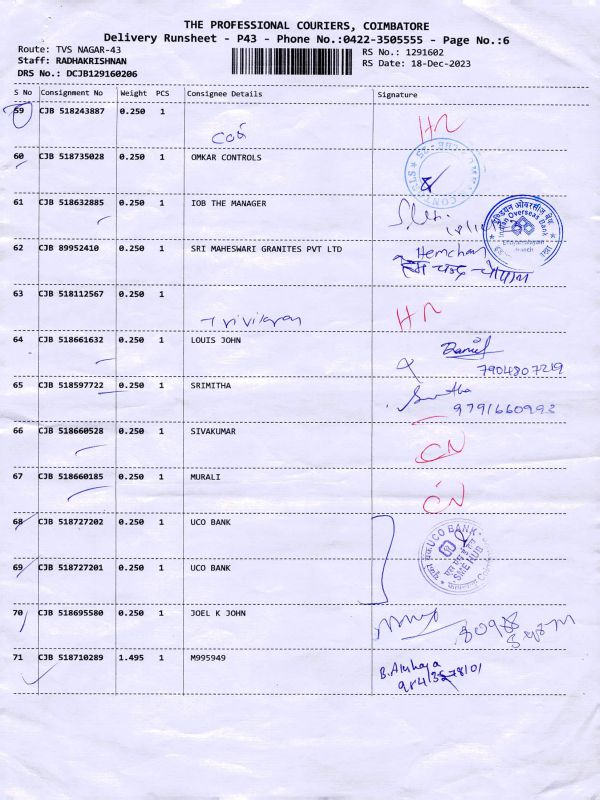 THE PROFESSIONAL COURIERS, COIMBATORE
Delivery Runsheet - P43 - Phone No.:0422-3505555 - Page No.:6
Route: TVS NAGAR-43
RS No.: 1291602
Staff: RADHAKRISHNAN
RS Date: 18-Dec-2023
DRS No.: DCJB129160206
S No Consignment No Weight PCS Consignee Details Signature
59 CJB 518243887 0.250 1
60 CJB 518735028 0.250 1 OMKAR CONTROLS
61 CJB 518632885 0.250 1 IOB THE MANAGER
इण्डियन ओवरसीज़ बैंक
Indian Overseas Bank
62 CJB 89952410 0.250 1 SRI MAHESWARI GRANITES PVT LTD
Hemchan
63 CJB 518112567 0.250 1
Trivikram
64 CJB 518661632 0.250 1 LOUIS JOHN
7904807219
65 CJB 518597722 0.250 1 SRIMITHA
9791660993
66 CJB 518660528 0.250 1 SIVAKUMAR
CN
67 CJB 518660185 0.250 1 MURALI
CN
68 CJB 518727202 0.250 1 UCO BANK
UCO BANK
SME HUB
69 CJB 518727201 0.250 1 UCO BANK
70 CJB 518695580 0.250 1 JOEL K JOHN
71 CJB 518710289 1.495 1 M995949